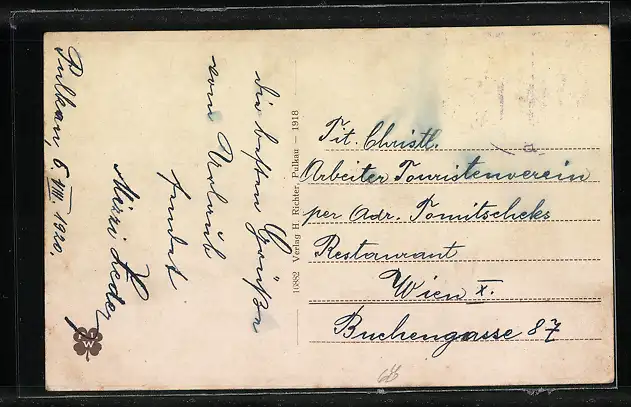 Pulkau, 6. VIII. 1920.
die besten Grüße
vom Urlaub
sendet
Mizzi
16882 Verlag H. Richter, Pulkau — 1918
Tit. Christl.
Arbeiter Touristenverein
per Adr. Tomitscheks
Restaurant
Wien X.
Buchengasse 87
W